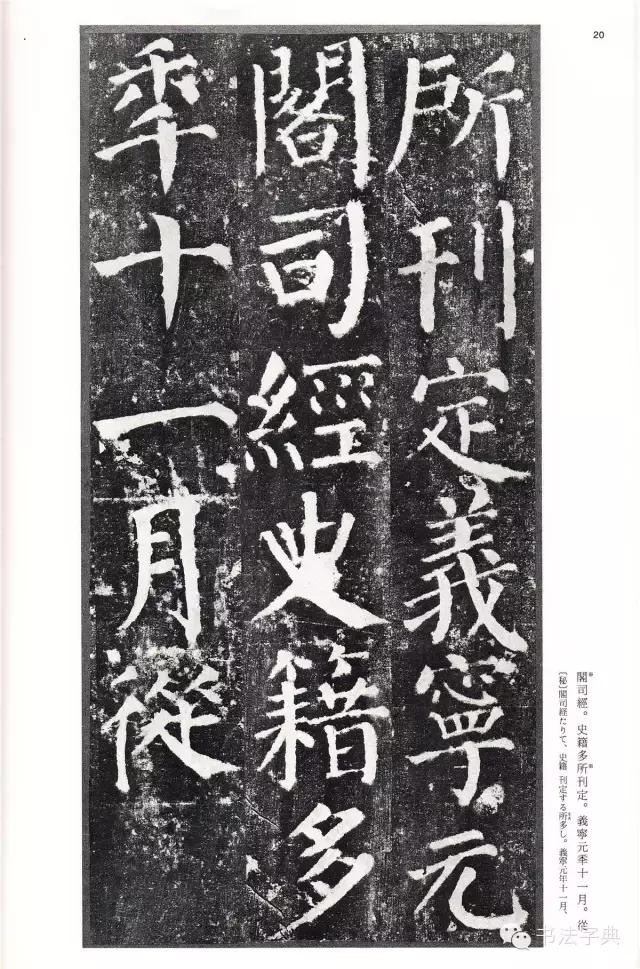 20
所刊定義寧元
閣司經史籍多
秊十一月從
閣司經。史籍多所刊定。義寧元秊十一月。從
〔秘〕閣司経たりて、史籍 刊定する所多し。義寧元年十一月、
书法字典